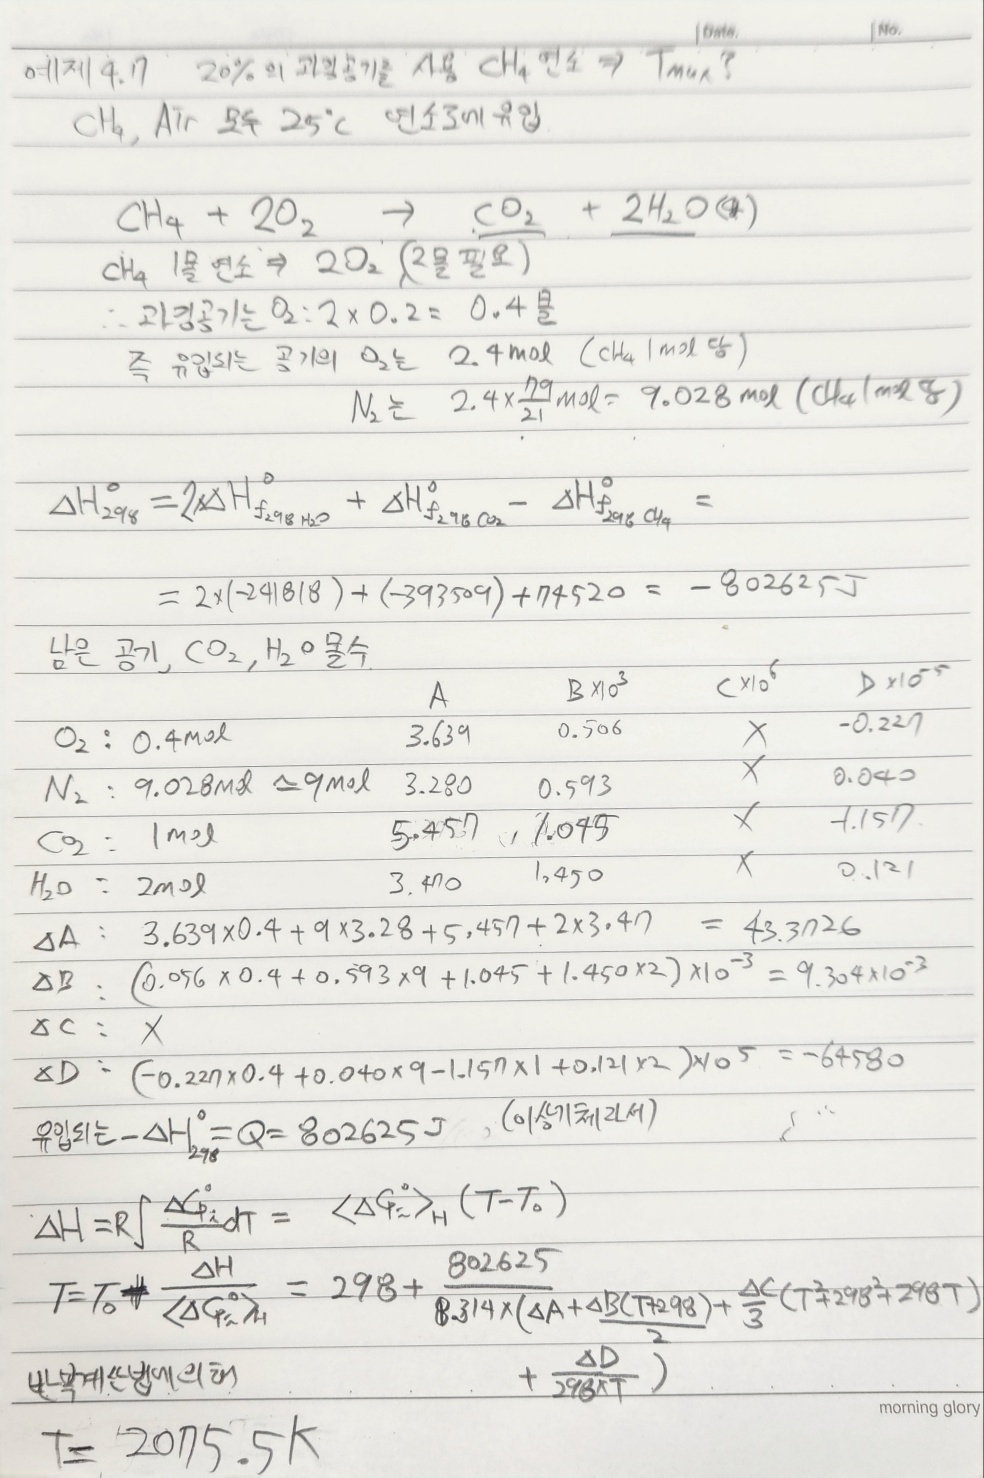 Date. No.
예제 4.7 20%의 과잉공기를 사용 CH₄ 연소 ⇒ Tmax?
CH₄, Air 모두 25°C 연소로에 유입
CH₄ + 2O₂ → CO₂ + 2H₂O(g)
CH₄ 1몰 연소 ⇒ 2O₂ (2몰 필요)
∴ 과잉공기는 O₂ : 2 × 0.2 = 0.4 몰
즉 유입되는 공기의 O₂는 2.4mol (CH₄ 1mol 당)
N₂는 2.4 × 79/21 mol = 9.028 mol (CH₄ 1mol 당)
ΔH°298 = 2×ΔH°f298 H₂O + ΔH°f298 CO₂ − ΔH°f298 CH₄ =
= 2×(-241818) + (-393509) + 74520 = -802625J
남은 공기, CO₂, H₂O 몰수
A B×10³ C×10⁶ D×10⁻⁵
O₂ : 0.4mol 3.639 0.506 X -0.227
N₂ : 9.028mol ≃ 9mol 3.280 0.593 X 0.040
CO₂ : 1mol 5.457 , 1.045 X -1.157
H₂O : 2mol 3.470 1.450 X 0.121
ΔA : 3.639×0.4 + 9×3.28 + 5.457 + 2×3.47 = 43.3726
ΔB : (0.056 × 0.4 + 0.593 × 9 + 1.045 + 1.450 × 2) × 10⁻³ = 9.304×10⁻³
ΔC : X
ΔD : (-0.227×0.4 + 0.040×9 - 1.157×1 + 0.121×2)×10⁵ = -64580
유입되는 -ΔH°298 = Q = 802625J , (이상기체라서)
ΔH = R∫ ΔCp°i/R dT = <ΔCp°i>H (T-T₀)
T = T₀ + ΔH/<ΔCp°i>H = 298 + 802625/8.314×(ΔA + ΔB(T+298)/2 + ΔC/3 (T²+298²+298T)
반복계산법에 의해 + ΔD/298×T )
T = 2075.5K
morning glory